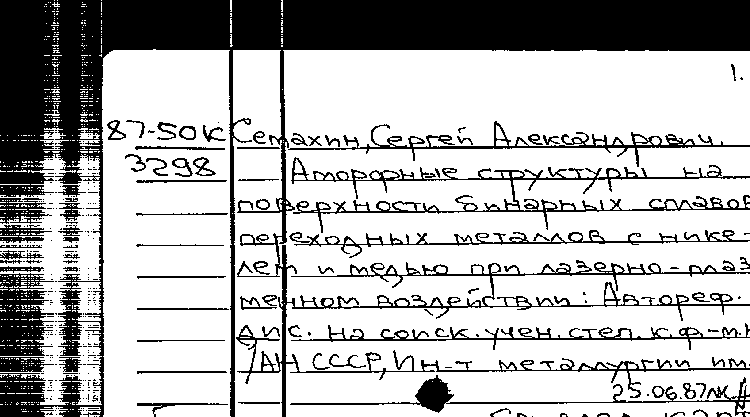 1.
87-50К Семахин, Сергей Александрович.
3298 Аморфные структуры на
поверхности бинарных сплавов
переходных металлов с нике-
лем и медью при лазерно-плаз
менном воздействии: Автореф.
дис. на соиск. учен. степ. к.ф-м.н
/АН СССР, Ин-т металлургии им.
25.06.87